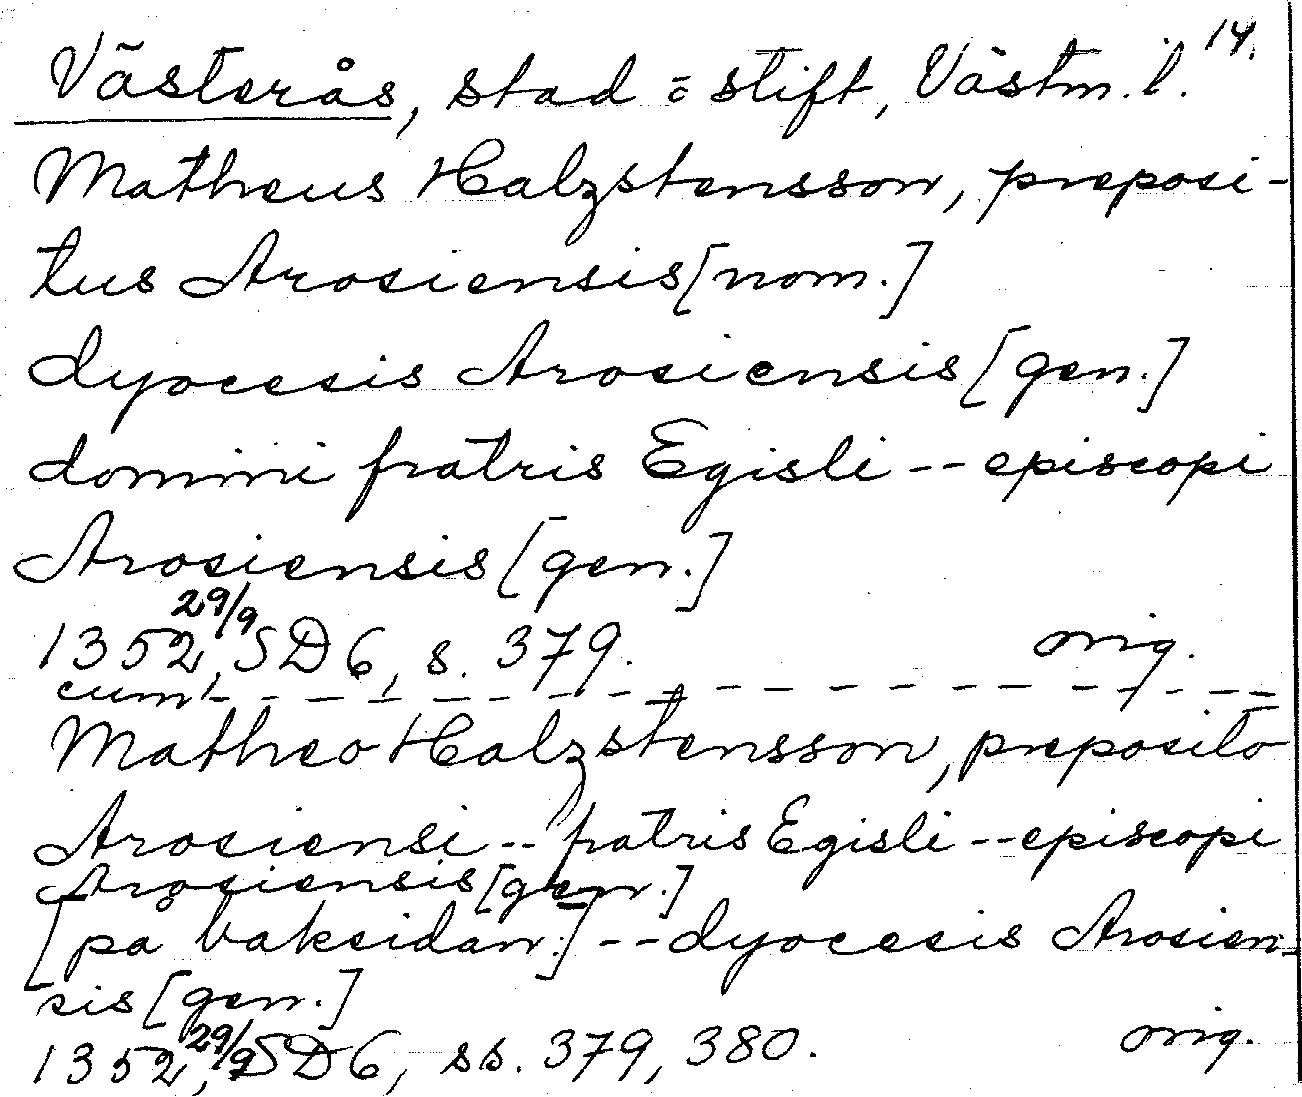 Västerås, stad o. stift, Västm. l. 14.
Matheus Halzstensson, preposi-
tus Arosiensis [nom.]
dyocesis Arosiensis [gen.]
domini fratris Egisli -- episcopi
Arosiensis [gen.]
1352 29/9, SD 6, s. 379. orig.
cum
Matheo Halzstensson, preposito
Arosiensi -- fratris Egisli -- episcopi
Arosiensis [gen.]
[på baksidan:] -- dyocesis Arosien-
sis [gen.]
1352 29/9, SD 6, ss. 379, 380. orig.